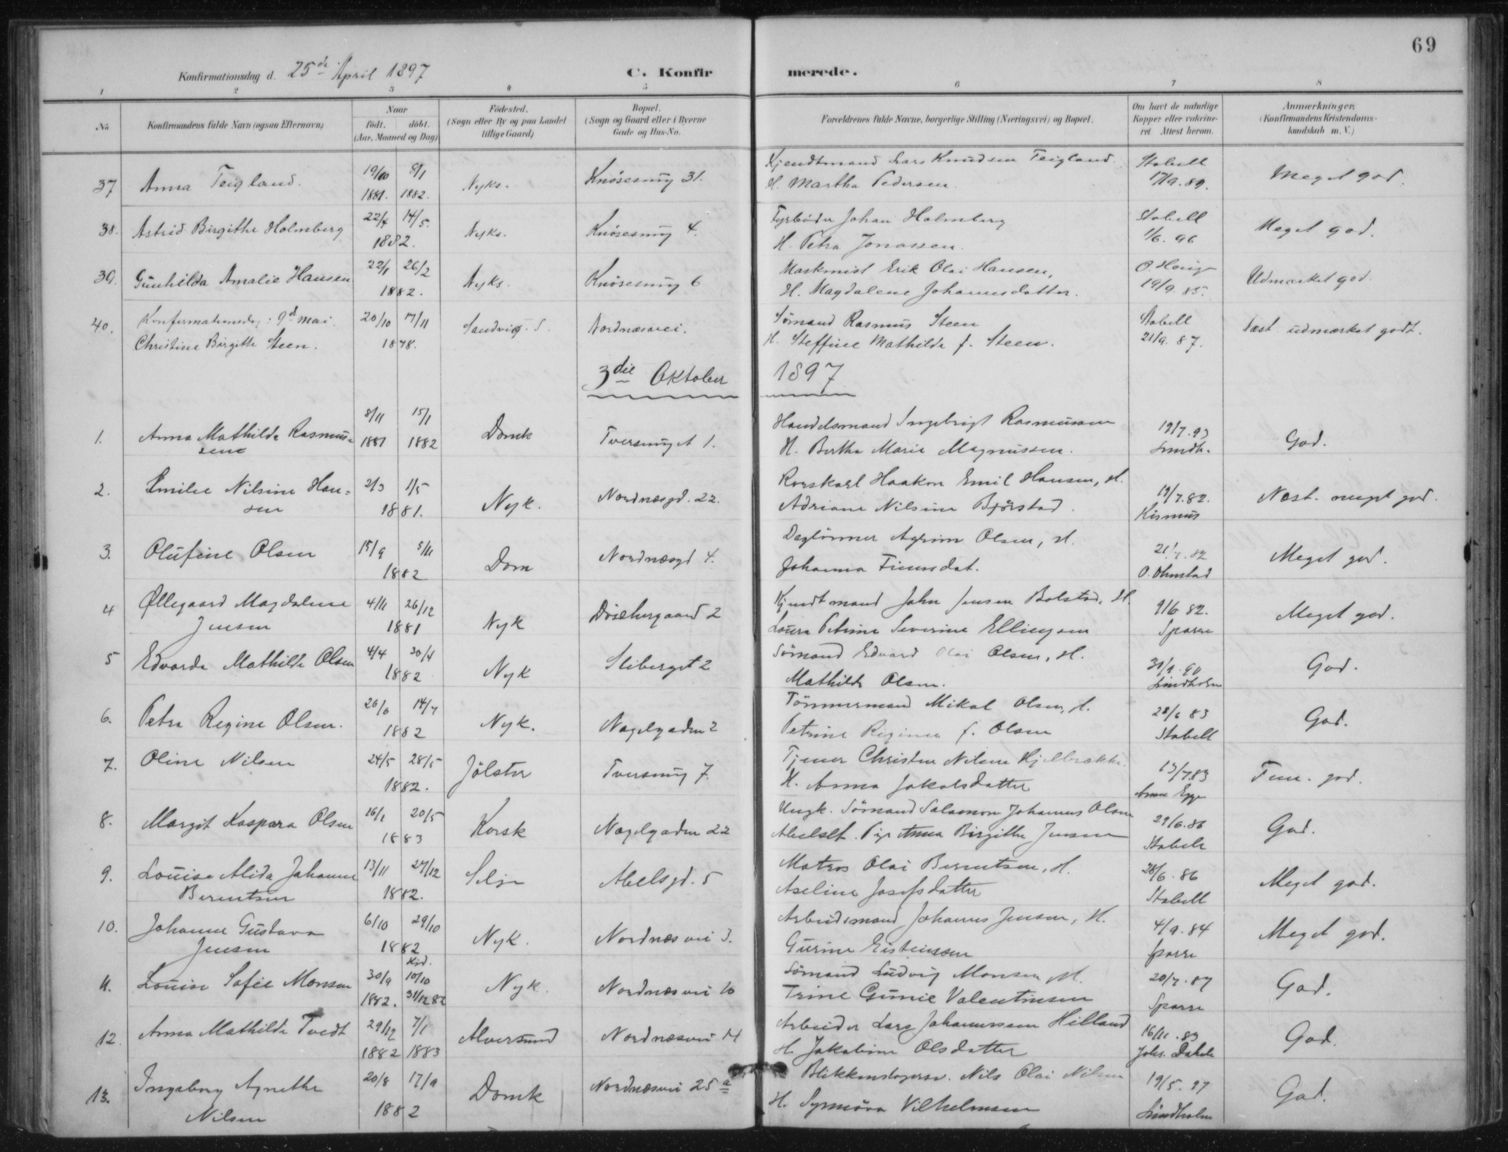 69
Konfirmationsdag d. 25de April 1897 C. Konfirmerede.
1 2 3 4 5 6 7 8
No. Konfirmandens fulde Navn (ogsaa Efternavn) Naar født. døbt. (Aar, Maaned og Dag) Fødested. (Sogn eller By og paa Landet tillige Gaard) Bopæl. (Sogn og Gaard eller i Byerne Gade og Hus-No. Forældrenes fulde Navne, borgerlige Stilling (Næringsvei) og Bopæl. Om havt de naturlige Kopper eller vaccineret Attest herom. Anmerkninger. (Konfirmandens Kristendomskundskab m. V.)
37 Anna Teigland. 19/10 1881. 8/1 1882. Nyks. Knøsesmug 31. Kjendtmand Lars Knudsen Teigland
H. Martha Pedersen 17/9.89. Meget god.
38. Astrid Birgithe Holmberg 22/4 14/5. 1882. Nyks. Knøsesmug 4. Fyrbøder Johan Holmberg
H. Petra Jonassen. Stabell 1/6.96 Meget god.
39. Gunhilda Amalie Hansen 22/1 26/2 1882. Nyks. Knøsesmug 6 Maskinist Erik Olai Hansen,
H. Magdalene Johannesdatter. 19/9 85. Udmærket god.
40. Konfirmationsdag: 9de Mai. 20/10 17/11 Sandvig. S. Nordnæsvei. Sømand Rasmus Steen Stabell
Christine Birgitte Steen. 1878. H. Steffine Mathilde f. Steen. 21/9.87. Næst udmærket godt.
3die Oktober 1897
1. Anna Mathilde Rasmussene 8/11 1881 15/1 1882 Domk Tversmuget 1. Handelsmand Ingebrigt Rasmussen
H. Bertha Marie Magnussen. 19/7.93 Lindh. God.
2. Emilie Nilsine Hansen 2/3 1/5 1881. Nyk. Nordnæsgd. 22. Rorskarl Haakon Emil Hansen, H.
Adriane Nilsine Bjørstad. 19/7.82. Næst. meget god.
3. Olufine Olsen 15/9 5/11 1882 Dom Nordnæsgd 4. Dagtømmer Olsen, H.
Johanna Finnsdat. O. Ohnstad Meget god.
4 Øllegaard Magdalene Jensen 4/11 26/12 1881 Nyk 2 Kjendtmand John Jensen Bolstad, H.
Loura Petrine Severine Ellingsen 9/6 82. Sparre Meget god.
5 Edvarda Mathilde Olsen 4/4 30/4 1882 Nyk Steberget 2 Sømand Edvard Olai Olsen, H.
Mathilde Olsen. Lindholm God.
6. Petra Regine Olsen. 1882 Nyk. Nagelgaden 2 Tømmermand Mikal Olsen, H.
Petrine Regine f. Olsen 83 Stabell God.
7. Oline Nilsen 24/5 28/5 1882. Jølster Tversmug 7 Tjener Christen Nilsen
H. Anna Jakobsdatter 13/7 83 Egge god.
8. Margit Kaspara Olsen 16/1 20/5 1883 Korsk Nagelgaden 22 Ungk. Sømand Salamon Johannes Olsen
Pige Anna Birgithe Jensen 29/6.86 Stabell God.
9. Lovisa Alida Johanne Berentsen 13/11 27/12 1882. Selje Abelsgd. 5 Matros Olai Berentsen, H.
Aseline Josefsdatter 28/6.86 Stabell Meget god.
10. Johanne Gustava Jensen 6/10 29/10 1882 Nyk. Nordnæsvei 3. Arbeidsmand Johannes Jensen, H.
Gurine Eistensen 4/9.84 Sparre Meget god.
11. Lovise Sofie Monsen 30/9 1882. 10/10 31/12 82 Nyk. Nordnæsvei 10 Sømand Ludvig Monsen H.
Trine Gunie Valentinsen 20/7.87 Sparre God.
12. Anna Mathilde Tvedt 29/12 1882 7/1 1883 Alversund Nordnæsvei 14 Arbeider Lars Johannessen Hilland
H. Jakobine Olsdatter 16/11.83 Johs. Dahl God.
13. Ingeborg Agnethe Nilsen 20/8 17/9 1882 Domk Nordnæsvei 25 a Blikkenslagersv. Nils Olai Nilsen
H. Synnøva Vilhelmsen 19/5.97 Lindholm God.